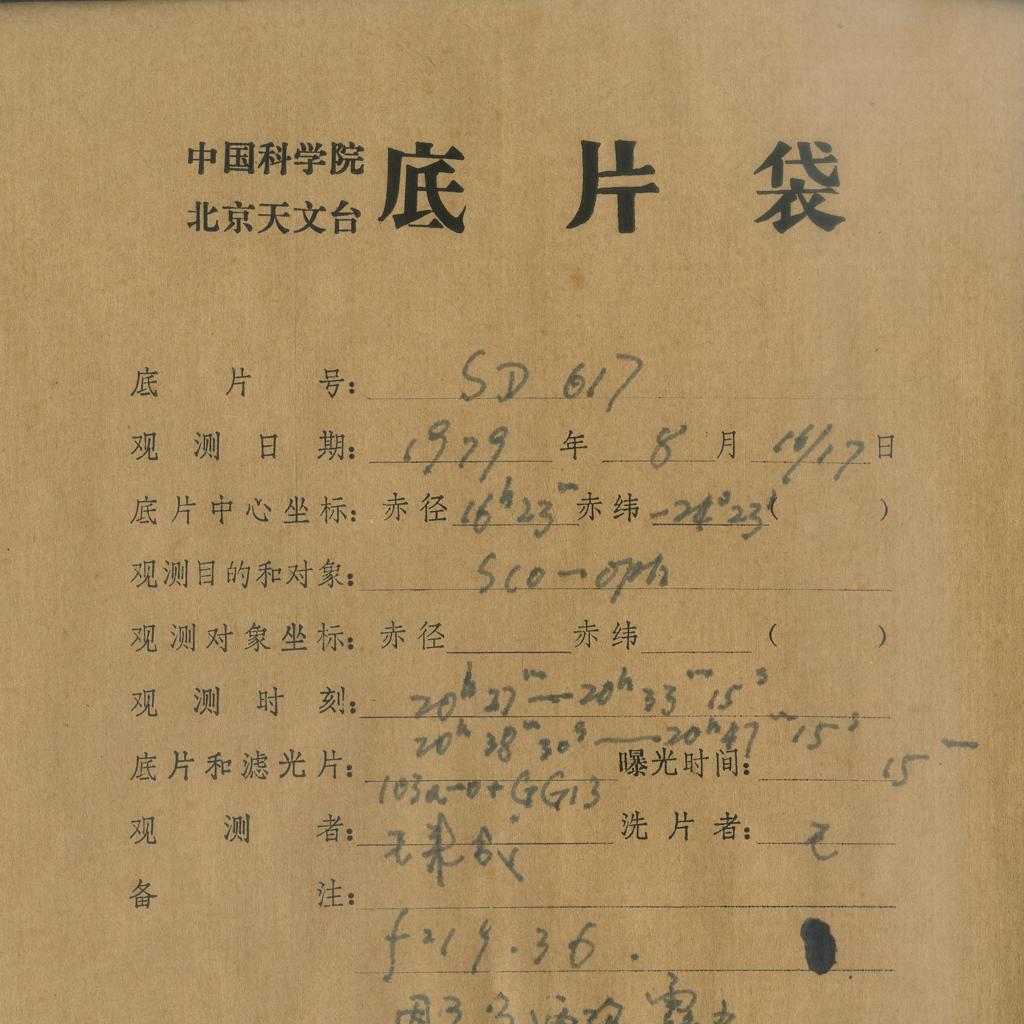 中国科学院
北京天文台
底片袋
底片号: SD 617
观测日期: 1979 年 8 月 16/17 日
底片中心坐标: 赤径 16h23m 赤纬 -24°23′ ( )
观测目的和对象: Sco-oph
观测对象坐标: 赤径 赤纬 ( )
观测时刻: 20h27m—20h33m15s
20h38m30s—20h47m15s
底片和滤光片: 103a-o+GG13 曝光时间: 15m
观测者:
洗片者:
备注:
f=19.36.